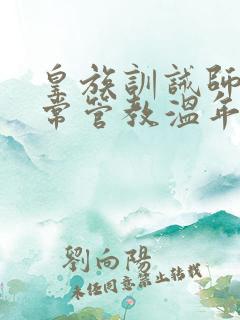 皇族訓誡師
常管教溫年
劉向陽
未經同意禁止轉載